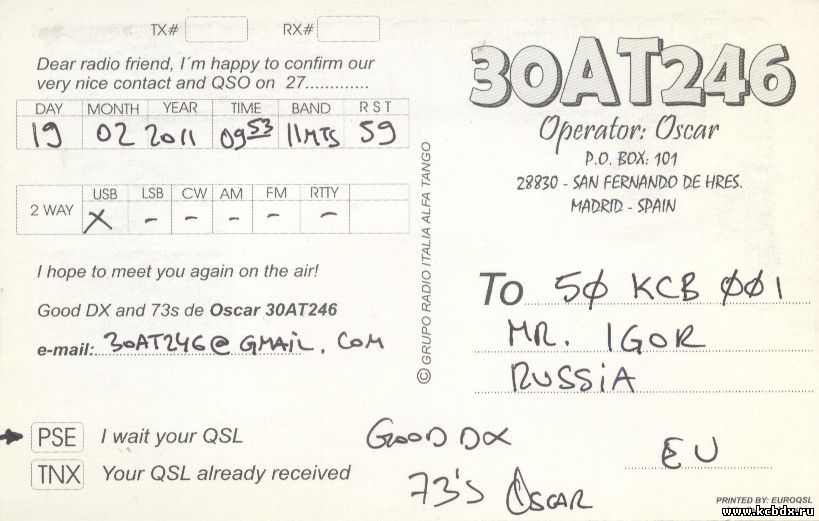 TX# RX#
Dear radio friend, I´m happy to confirm our
very nice contact and QSO on 27.............
DAY MONTH YEAR TIME BAND R S T
19 02 2011 0953 11MTS 59
USB LSB CW AM FM RTTY
2 WAY X - - - - -
I hope to meet you again on the air!
Good DX and 73s de Oscar 30AT246
e-mail: 30AT246@GMAIL.COM
PSE I wait your QSL
TNX Your QSL already received
© GRUPO RADIO ITALIA ALFA TANGO
30AT246
Operator: Oscar
P.O. BOX: 101
28830 - SAN FERNANDO DE HRES.
MADRID - SPAIN
To 50 KCB 001
MR. IGOR
RUSSIA
EU
GOOD DX
73's OSCAR
PRINTED BY: EUROQSL
www.kcbdx.ru